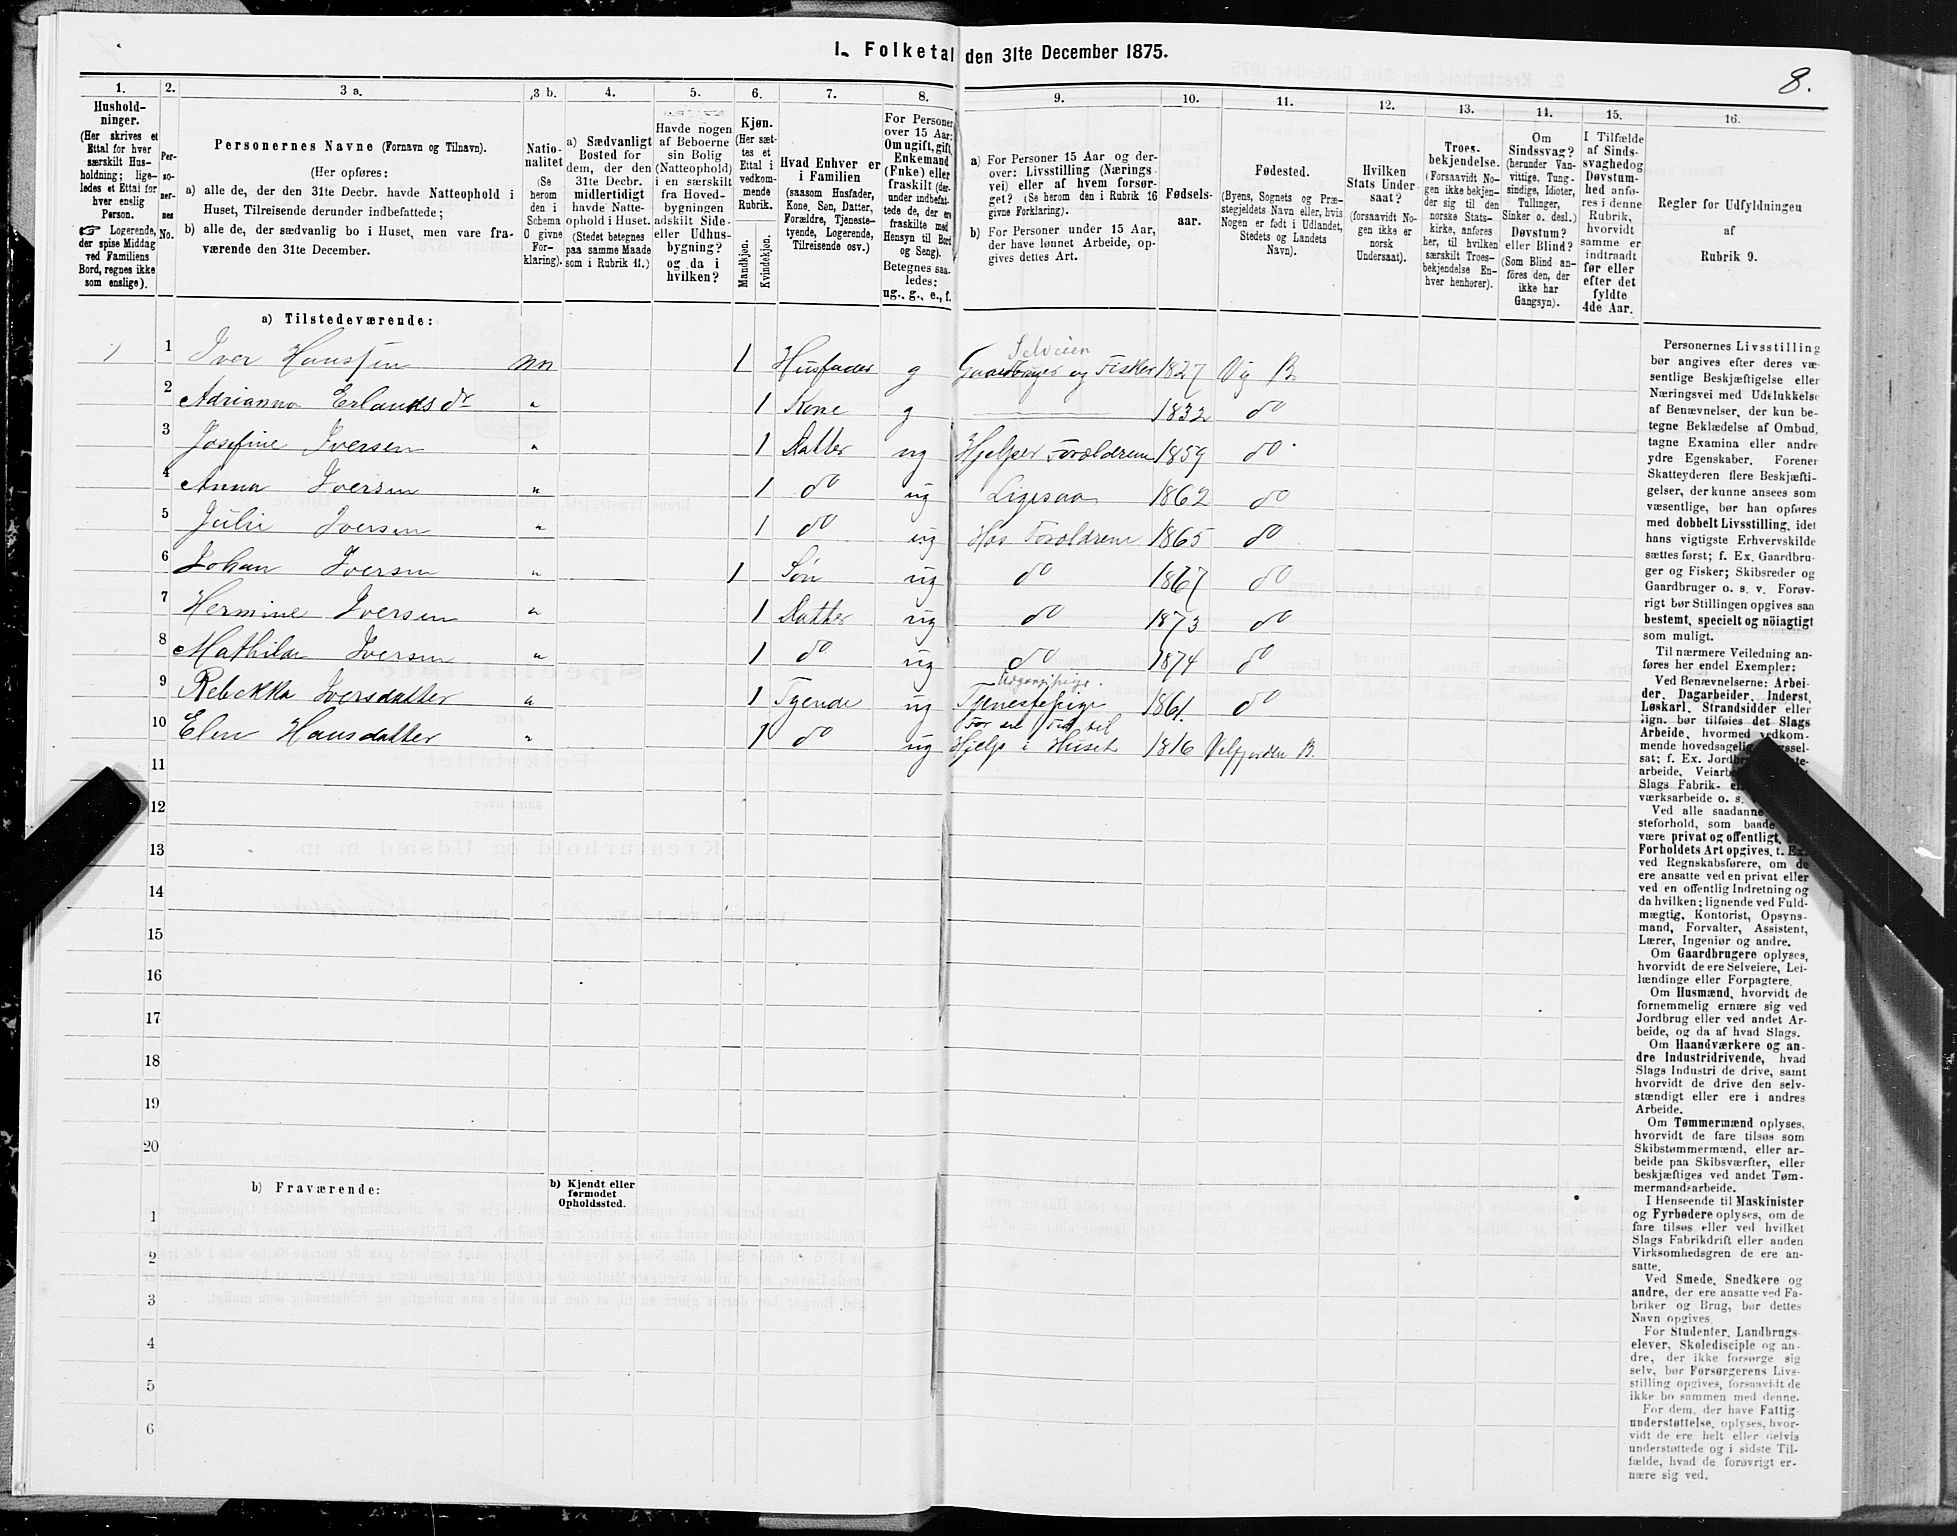 1. Folketal den 31te December 1875.
8.
1.
Hushold-
ninger.
(Her skrives et
Ettal for hver
særskilt Hus-
holdning; lige-
ledes et Ettal for
hver enslig
Person.
☞ Logerende,
der spise Middag
ved Familiens
Bord, regnes ikke
som enslige).
2.
Per-
so-
ner-
nes
No.
3 a.
Personernes Navne (Fornavn og Tilnavn).
(Her opføres:
a) alle de, der den 31te Decbr. havde Natteophold i
Huset, Tilreisende derunder indbefattede;
b) alle de, der sædvanlig bo i Huset, men vare fra-
værende den 31te December.
3 b.
Natio-
nalitet
(Se
herom
den i
Schema
O givne
For-
klaring).
4.
a) Sædvanligt
Bosted for
dem, der den
31te Decbr.
midlertidigt
havde Natte-
ophold i Huset.
(Stedet betegnes
paa samme Maade
som i Rubrik 11.)
5.
Havde nogen
af Beboerne
sin Bolig
(Natteophold)
i en særskilt
fra Hoved-
bygningen
adskilt Side-
eller Udhus-
bygning?
og da i
hvilken?
6.
Kjøn.
(Her sæt-
tes et
Ettal i
vedkom-
mende
Rubrik.
Mandkjøn.
Kvindekjøn.
7.
Hvad Enhver er
i Familien
(saasom Husfader,
Kone, Søn, Datter,
Forældre, Tjeneste-
tyende, Logerende,
Tilreisende osv.)
8.
For Personer
over 15 Aar:
Om ugift, gift,
Enkemand
(Enke) eller
fraskilt (der-
under indbefat-
tede de, der ere
fraskilte med
Hensyn til Bord
og Seng).
Betegnes saa-
ledes:
ug., g., e., f.
9.
a) For Personer 15 Aar og der-
over: Livsstilling (Nærings-
vei) eller af hvem forsør-
get? (Se herom den i Rubrik 16
givne Forklaring).
b) For Personer under 15 Aar,
der have lønnet Arbeide, op-
gives dettes Art.
10.
Fødsels-
aar.
11.
Fødested.
(Byens, Sognets og Præ-
stegjeldets Navn eller, hvis
Nogen er født i Udlandet,
Stedets og Landets
Navn).
12.
Hvilken
Stats Under-
saat?
(forsaavidt No-
gen ikke er
norsk
Undersaat).
13.
Troes-
bekjendelse.
(Forsaavidt No-
gen ikke bekjen-
der sig til den
norske Stats-
kirke, anføres
her, til hvilken
særskilt Troes-
bekjendelse En-
hver henhører).
14.
Om
Sindssvag?
(herunder Van-
vittige, Tung-
sindige, Idioter,
Tullinger,
Sinker o. desl.)
Døvstum?
eller Blind?
(Som Blind an-
føres den, der
ikke har
Gangsyn).
15.
I Tilfælde
af Sinds-
svaghed og
Døvstum-
hed anfø-
res i denne
Rubrik,
hvorvidt
samme er
indtraadt
før eller
efter det
fyldte
4de Aar.
16.
Regler for Udfyldningen
af
Rubrik 9.
a) Tilstedeværende:
Selveier
1 1 Iver Hanssen nn 1 Husfader g Gaardbruger og Fisker 1827 Vig B.
2 Adrianna Erlandsdr " 1 Kone g 1832 do
3 Josefine Iversen " 1 Datter ug Hjelper Forældrene 1859 do
4 Anna Iversen " 1 do ug Ligesaa 1862 do
5 Julie Iversen " 1 do ug Hos Forældrene 1865 do
6 Johan Iversen " 1 Søn ug do 1867 do
7 Hermine Iversen " 1 Datter ug do 1873 do
8 Mathilde Iversen " 1 do ug do 1874 do
9 Rebekka Iversdatter " 1 Tyende ug Tjenestepige 1861. do
For en Tid til
10 Elen Hansdatter " 1 do ug Hjelp i Huset 1816 Velfjorden B.
11
12
13
14
15
16
17
18
19
20
b) Fraværende:
b) Kjendt eller
formodet
Opholdssted.
1
2
3
4
5
6
Personernes Livsstilling
bør angives efter deres væ-
sentlige Beskjæftigelse eller
Næringsvei med Udelukkelse
af Benævnelser, der kun be-
tegne Beklædelse af Ombud,
tagne Examina eller andre
ydre Egenskaber. Forener
Skatteyderen flere Beskjæfti-
gelser, der kunne ansees som
væsentlige, bør han opføres
med dobbelt Livsstilling, idet
hans vigtigste Erhvervskilde
sættes først; f. Ex. Gaardbru-
ger og Fisker; Skibsreder og
Gaardbruger o. s. v. Forøv-
rigt bør Stillingen opgives saa
bestemt, specielt og nöiagtigt
som muligt.
Til nærmere Veiledning an-
føres her endel Exempler;
Ved Benævnelserne: Arbei-
der, Dagarbeider, Inderst,
Løskarl, Strandsidder eller
lign. bør tilføies det Slags
Arbeide, hvormed vedkom-
mende hovedsagelig
sat; f. Ex.
arbeide,
Slags Fabrik-
værksarbeide o. s.
Ved alle saadanne
steforhold, som baade
være privat og offentligt,
Forholdets Art opgives, t. Ex.
ved Regnskabsførere, om de
ere ansatte ved en privat eller
ved en offentlig Indretning og
da hvilken; lignende ved Fuld-
mægtig, Kontorist, Opsyns-
mand, Forvalter, Assistent,
Lærer, Ingeniør og andre.
Om Gaardbrugere oplyses,
hvorvidt de ere Selveiere, Lei-
lændinge eller Forpagtere.
Om Husmænd, hvorvidt de
fornemmelig ernære sig ved
Jordbrug eller ved andet Ar-
beide, og da af hvad Slags.
Om Haandværkere og an-
dre Industridrivende, hvad
Slags Industri de drive, samt
hvorvidt de drive den selv-
stændigt eller ere i andres
Arbeide.
Om Tømmermænd oplyses,
hvorvidt de fare tilsøs som
Skibstømmermænd, eller ar-
beide paa Skibsværfter, eller
beskjæftiges ved andet Tøm-
mermandsarbeide.
I Henseende til Maskinister
og Fyrbødere oplyses, om de
fare tilsøs eller ved hvilket
Slags Fabrikdrift eller anden
Virksomhedsgren de ere an-
satte.
Ved Smede, Snedkere og
andre, der ere ansatte ved Fa-
briker og Brug, bør dettes
Navn opgives.
For Studenter, Landbrugs-
elever, Skoledisciple og an-
dre, der ikke forsørge sig
selv, bør Forsørgerens Livs-
stilling opgives, forsaavidt de
ikke bo sammen med denne.
For dem, der have Fattig-
understøttelse, oplyses, hvor-
vidt de ere helt eller delvis
understøttede og i sidste Til-
fælde, hvad de forøvrigt er-
nære sig ved.